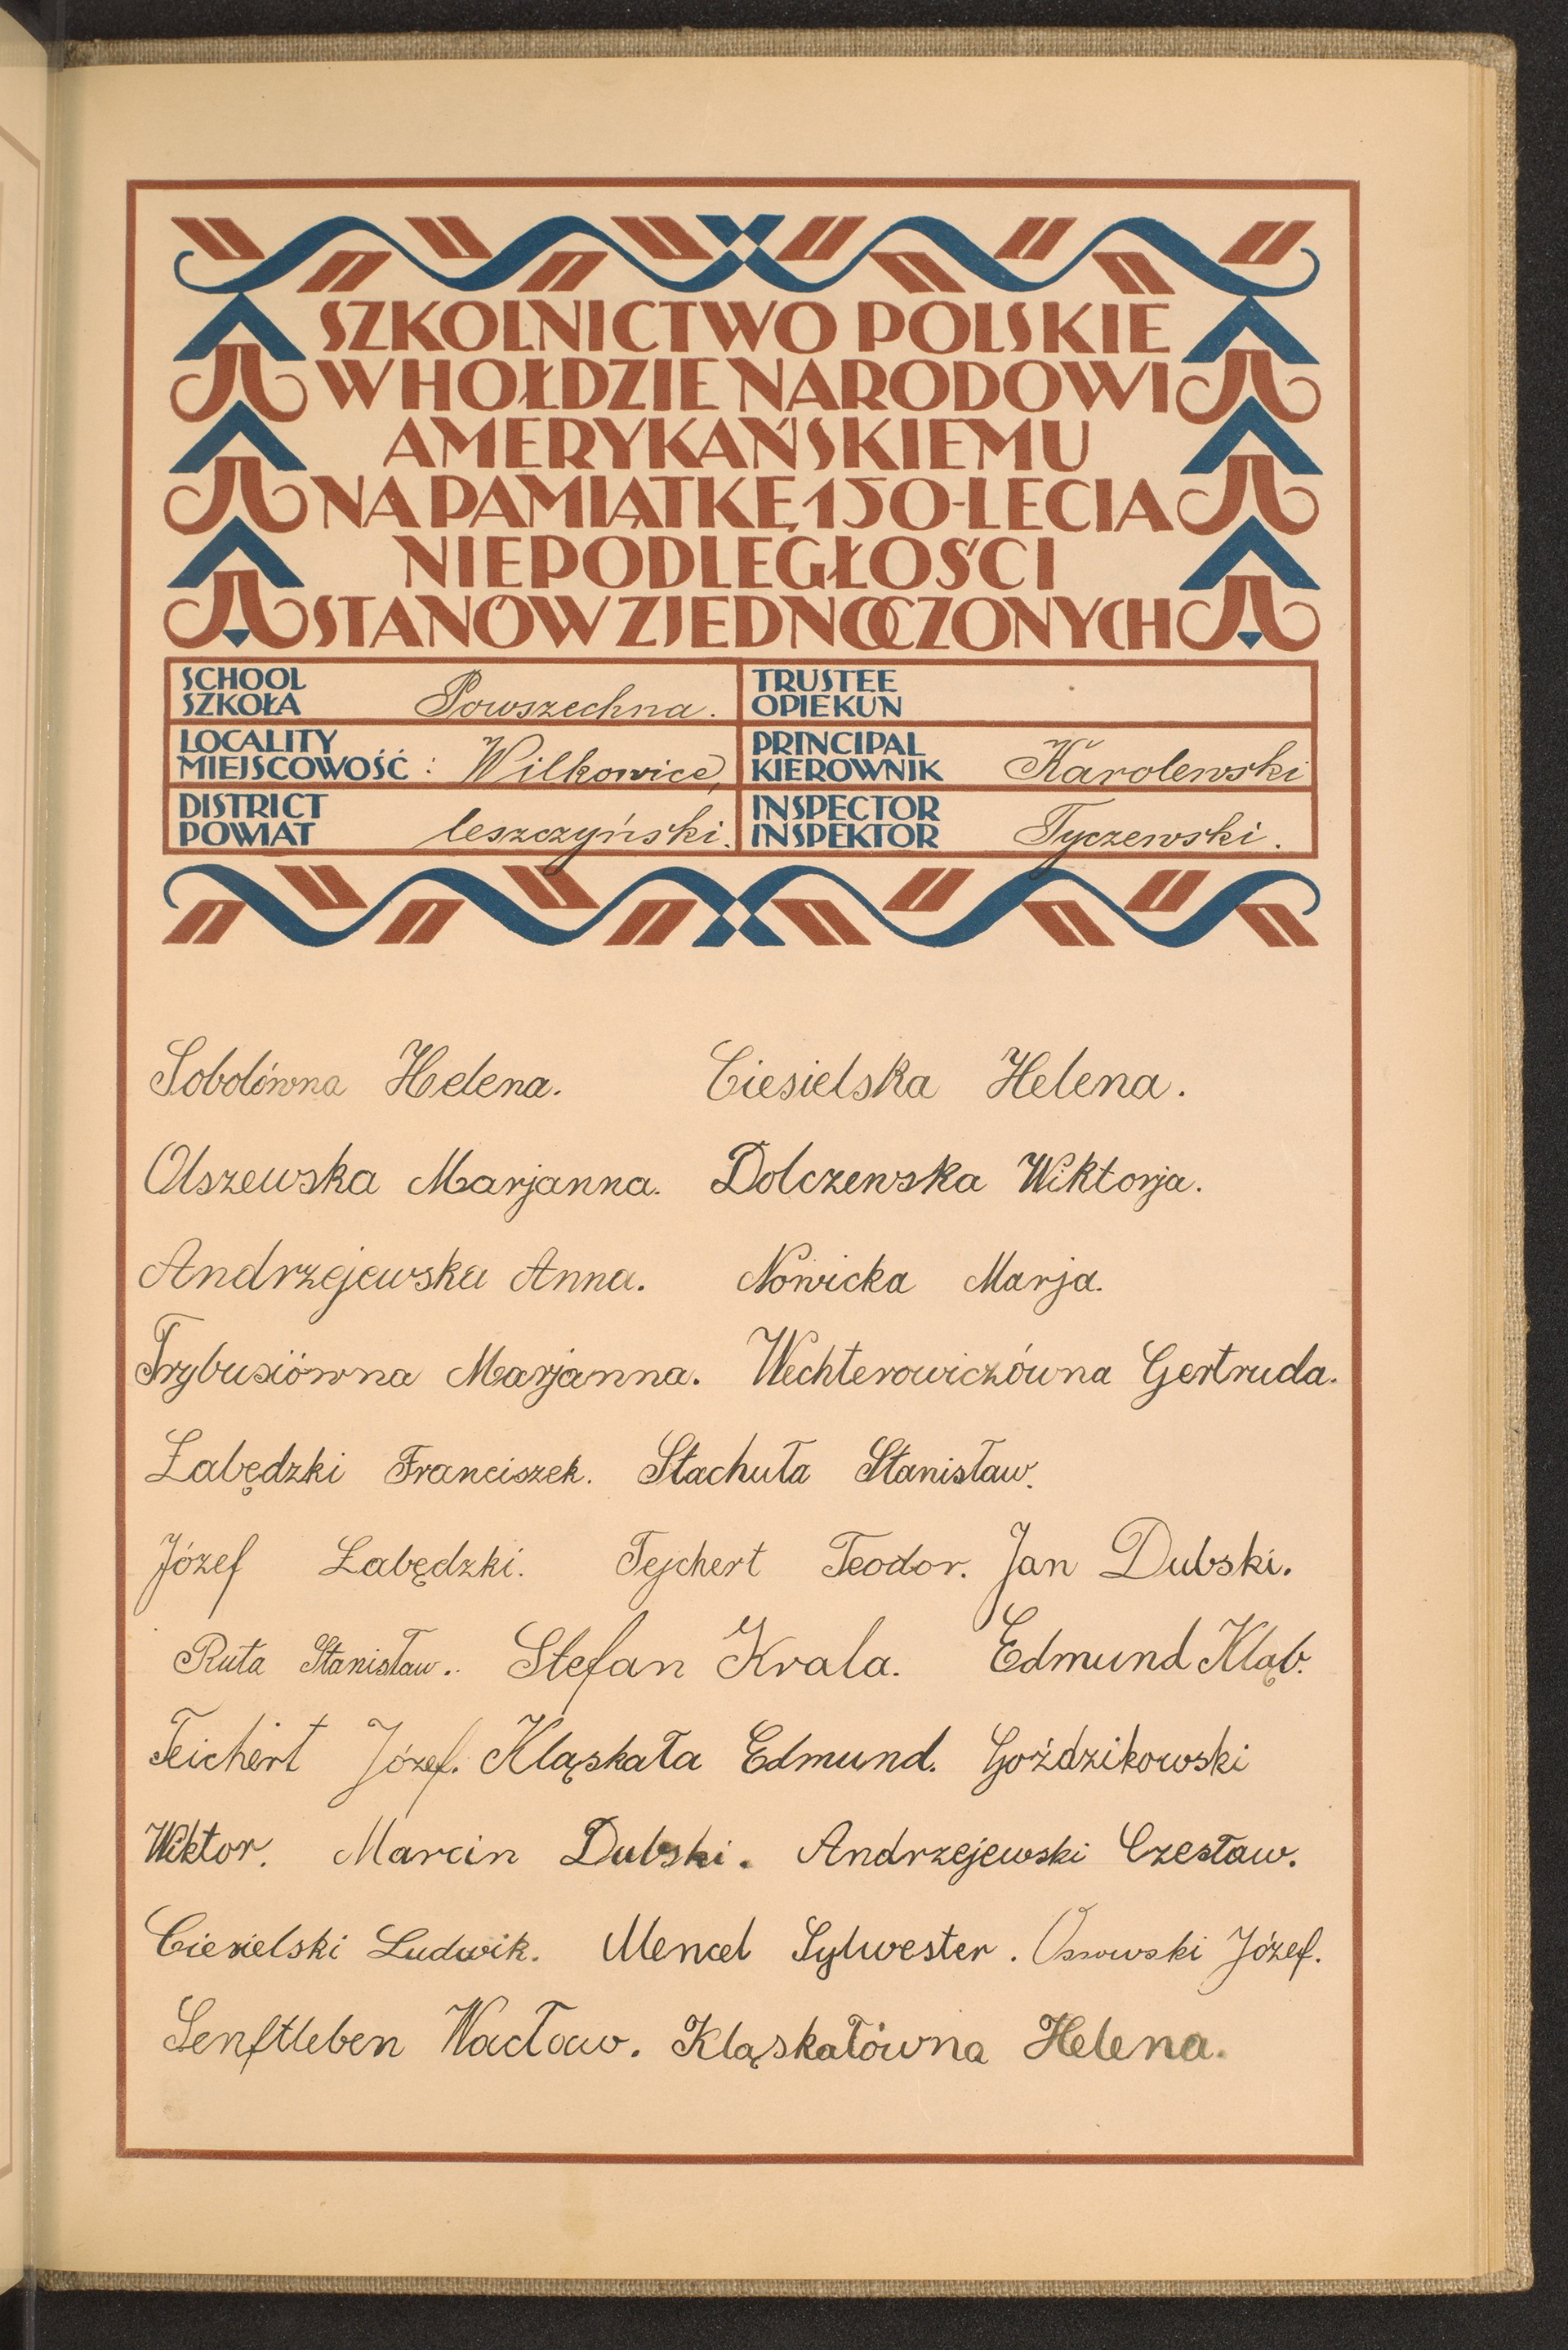 SZKOLNICTWO POLSKIE
W HOŁDZIE NARODOWI
AMERYKAŃSKIEMU
NA PAMIĄTKĘ 150-LECIA
NIEPODLEGŁOŚCI
STANÓW ZJEDNOCZONYCH
SCHOOL
SZKOŁA Powszechna.
TRUSTEE
OPIEKUN
LOCALITY
MIEJSCOWOŚĆ : Wilkowice,
PRINCIPAL
KIEROWNIK Karolewski
DISTRICT
POWIAT leszczyński.
INSPECTOR
INSPEKTOR Tyczewski.
Sobolówna Helena. Ciesielska Helena.
Olszewska Marjanna. Dolczewska Wiktorja.
Andrzejewska Anna. Nowicka Marja.
Trybusiówna Marjanna. Wechterowiczówna Gertruda.
Łabędzki Franciszek. Stachuła Stanisław.
Józef Łabędzki. Tejchert Teodor. Jan Dubski.
Ruta Stanisław. Stefan Krala. Edmund Kląb.
Teichert Józef. Kląskała Edmund. Goździkowski
Wiktor. Marcin Dubski. Andrzejewski Czesław.
Ciesielski Ludwik. Mencel Sylwester. Ossowski Józef.
Senftleben Wacław. Kląskałówna Helena.